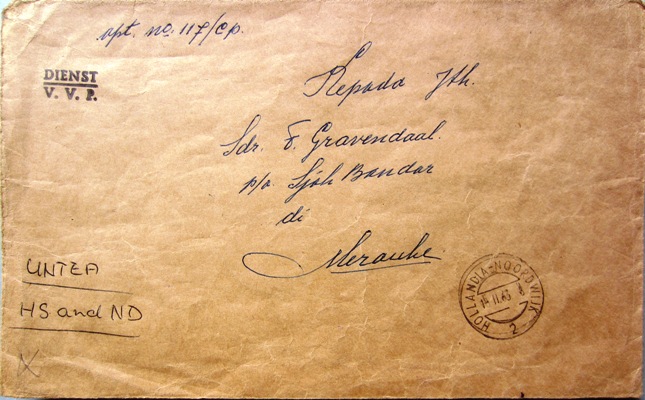 opt. no. 117/cp.
DIENST
V. V. P.
Kepada Jth.
Sdr. F. Gravendaal.
p/a. Sjah Bandar
di
Merauke
UNTEA
HS and ND
HOLLANDIA-NOORDWIJK
II.63. 8
2